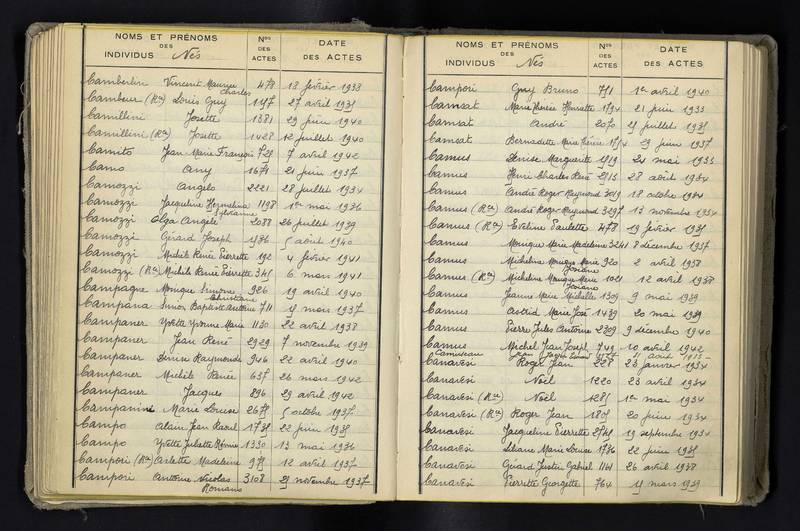 NOMS ET PRÉNOMS
DES
INDIVIDUS Nés
Nos
DES
ACTES
DATE
DES ACTES
Camberlin Vincent Maurice 478 18 février 1938
Charles
Cambour (Ron) Louis Guy 1147 27 avril 1935
Camillini Josette 1381 29 juin 1940
Camillini (Ron) Josette 1428 12 juillet 1940
Camito Jean Marie François 727 7 avril 1942
Camo Any 1671 21 juin 1937
Camozzi Angelo 2221 28 juillet 1934
Camozzi Jacqueline Hermelina 1198 1er mai 1936
Sylvianne
Camozzi Olga Angèle 2088 26 juillet 1939
Camozzi Gérard Joseph 1736 5 août 1940
Camozzi Michèle Renée Pierrette 192 4 février 1941
Camozzi (Ron) Michèle Renée Pierrette 345 6 mars 1941
Campagne Monique Simone 926 19 avril 1940
Christiane
Campana Simon Baptiste Antoine 711 9 mars 1937
Campaner Yvette Yvonne Marie 1130 22 avril 1938
Campaner Jean René 2929 7 novembre 1939
Campaner Denise Raymonde 946 22 avril 1940
Campaner Michèle Renée 637 26 mars 1942
Campaner Jacques 896 29 avril 1942
Campanini Marie Louise 2675 5 octobre 1937
Campo Alain Jean Raoul 1735 22 juin 1935
Campo Yvette Juliette Rémire 1330 13 mai 1936
Campori (Ron) Arlette Madeleine 975 12 avril 1937
Campori Antoine Nicolas 3108 29 novembre 1937
Romano
NOMS ET PRÉNOMS
DES
INDIVIDUS Nés
Nos
DES
ACTES
DATE
DES ACTES
Campori Guy Bruno 771 1er avril 1940
Camsat Marie Thérèse Henriette 1794 21 juin 1933
Camsat André 2070 25 juillet 1935
Camsat Bernadette Marie Thérèse 1754 29 juin 1937
Camus Denise Marguerite 1519 24 mai 1933
Camus Henri Charles René 2513 28 août 1934
Camus André Roger Raymond 3019 18 octobre 1934
Camus (Ron) André Roger Raymond 3297 13 novembre 1934
Camus (Ron) Eveline Paulette 478 19 février 1935
Camus Monique Marie Madeleine 3241 8 décembre 1937
Camus Micheline Monique Marie 920 2 avril 1938
Josiane
Camus (Ron) Micheline Monique Marie 1021 12 avril 1938
Josiane
Camus Jeanne Marie Michelle 1309 9 mai 1939
Camus Astrid Marie José 1439 20 mai 1939
Camus Pierre Jules Antoine 2809 9 décembre 1940
Camus Michel Jean Joseph 749 10 avril 1942
Canavési Roger Jean 228 23 janvier 1934
Canavési Noël 1220 23 avril 1934
Canavési (Ron) Noël 1285 1er mai 1934
Canavési (Ron) Roger Jean 1805 20 juin 1934
Canavési Jacqueline Pierrette 2745 19 septembre 1934
Canavési Liliane Marie Louise 1736 22 juin 1935
Canavési Gérard Justin Gabriel 1161 26 avril 1938
Canavési Pierrette Georgette 764 15 mars 1939